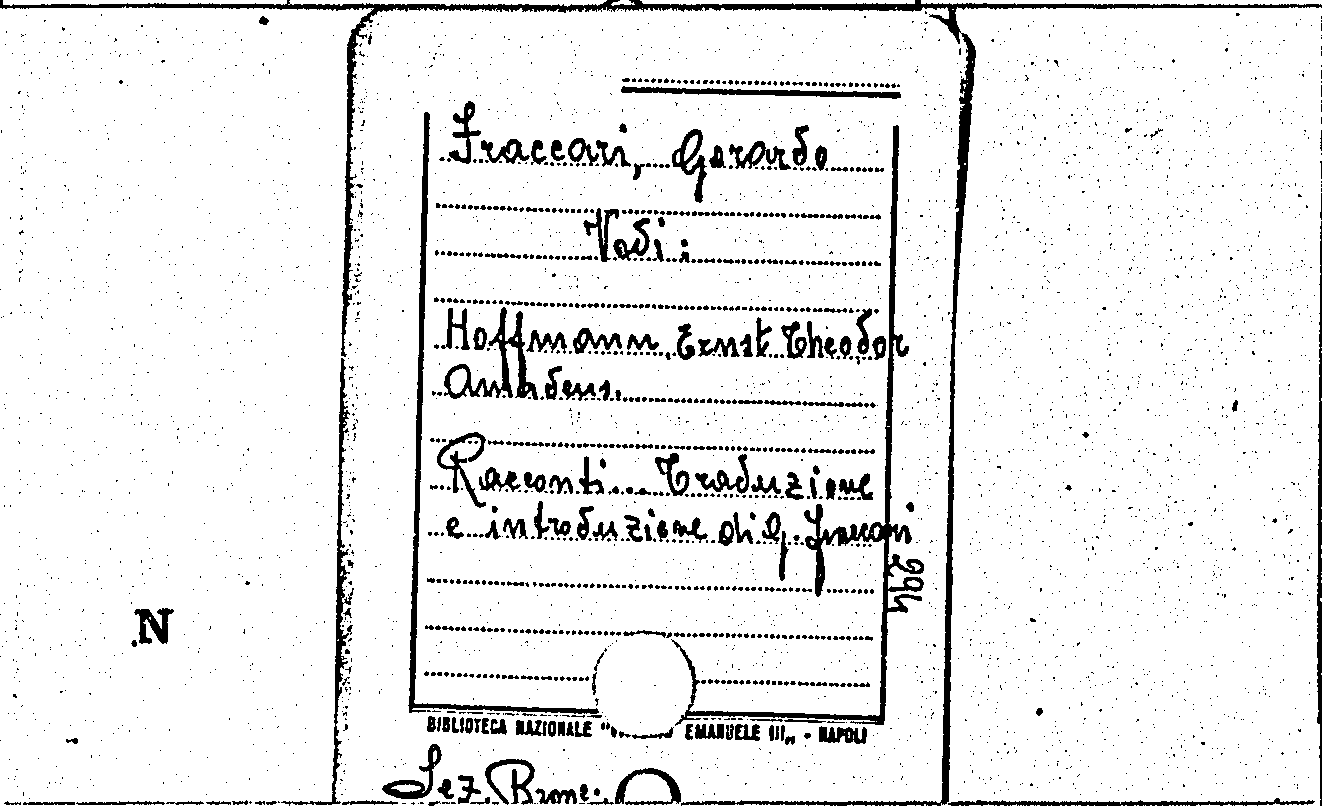 Fraccari, Gerardo
Vedi:
Hoffmann Ernst Theodor
Amadeus.
Racconti... Traduzione
e introduzione di G. Fraccari
294
N
BIBLIOTECA NAZIONALE " EMANUELE III„ - NAPOLI
Sez.